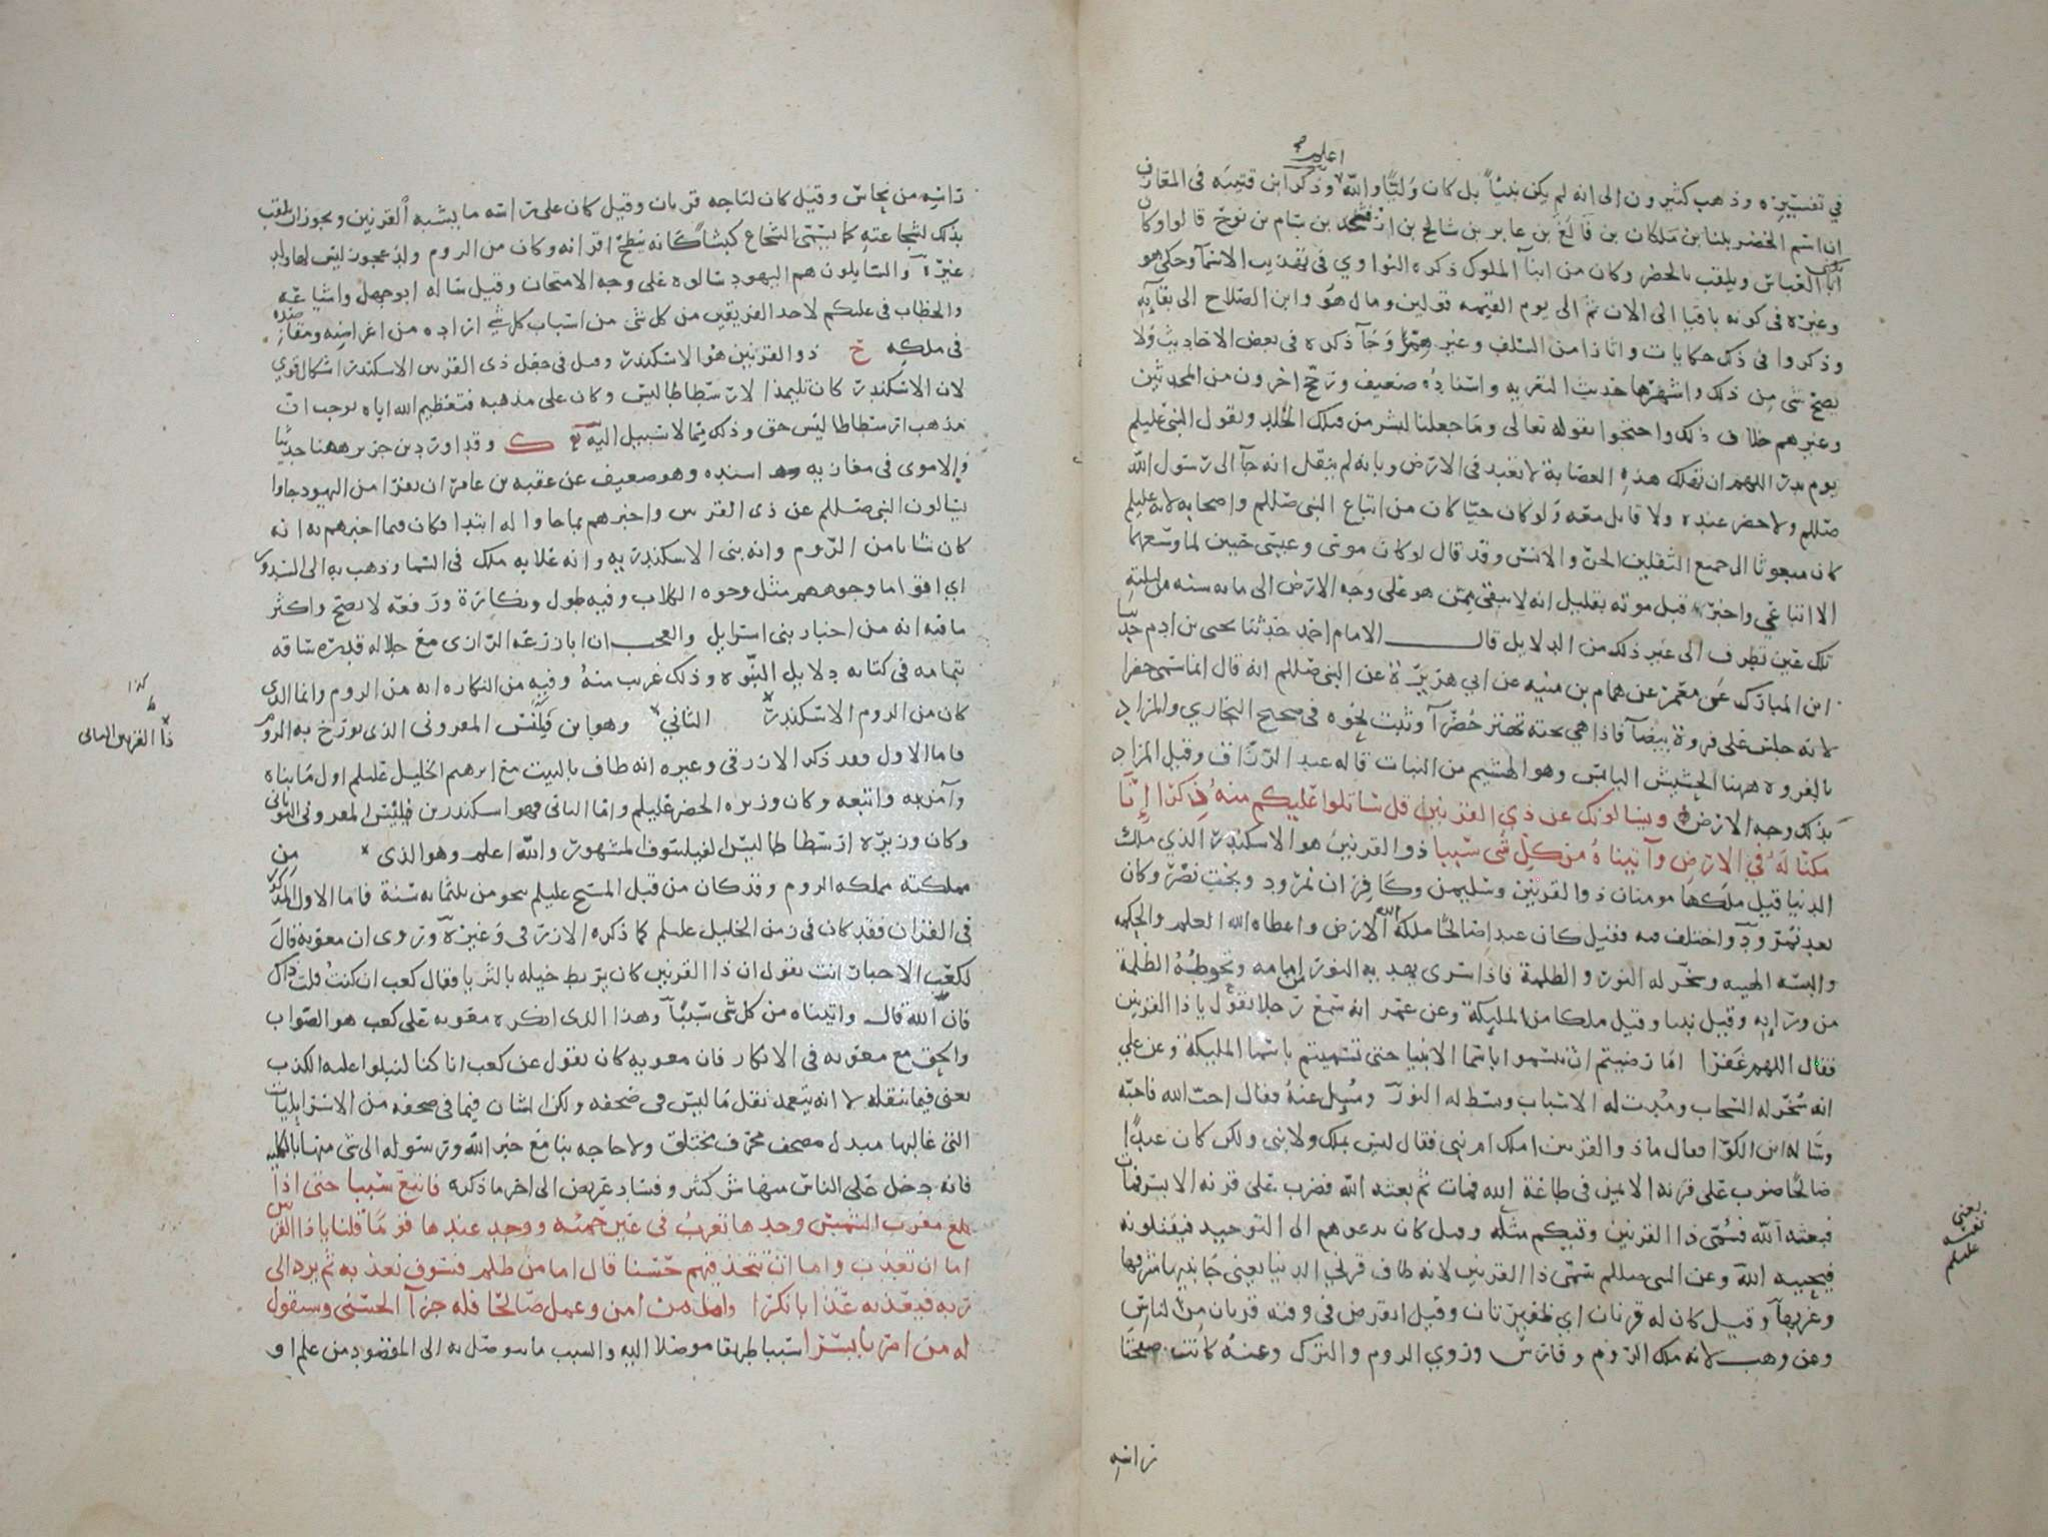 اعلم
في تفسيره وذهب كثيرون الى انه لم يكن نبيا بل كان وليا والله وذكر ابن قتيبه في المعارف
ان اسم الخضر بليا بن ملكان بن فالغ بن عابر بن شالخ بن ارفخشد بن سام بن نوح قالوا وكان
ابا العباس ويلقب بالخضر وكان من ابنآ الملوك ذكره النواوي في تهذيب الاسمآ وحكى هو
وغيره في كونه باقيا الى الان ثم الى يوم القيمه قولين ومال هو وابن الصلاح الى بقآيه
وذكروا في ذلك حكايات واثارا من السلف وغيرهم وجآ ذكره في بعض الاحاديث ولا
يصح شى من ذلك واشهرها حديث التعزيه واسناده ضعيف ورجح اخرون من المحدثين
وغيرهم خلاف ذلك واحتجوا بقوله تعالى وما جعلنا لبشر من قبلك الخلد وبقول النبي عليلم
يوم بدر اللهم ان تهلك هذه العصابة لا تعبد في الارض وبانه لم ينقل انه جآ الى رسول الله
صللم ولا حضر عنده ولا قاتل معه ولو كان حيا كان من اتباع النبي صللم واصحابه لانه عليلم
كان مبعوثا الى جميع الثقلين الجن والانس وقد قال لو كان موسى وعيسى حيين لما وسعهما
الا اتباعي واخبر قبل موته بقليل انه لا يبقى ممن هو على وجه الارض الى مايه سنه من ليلته
تلك عين تطرف الى غير ذلك من الدلايل قال الامام احمد حدثنا يحيى بن ادم حدثنا
ابن المبارك عن معمر عن همام بن منبه عن ابي هريرة عن النبي صللم انه قال انما سمي خضرا
لانه جلس على فروة بيضآ فاذا هي تحته تهتز خضرآ وثبت نحوه في صحيح البخاري والمراد
بالفروه ههنا الحشيش اليابس وهو الهشيم من النبات قاله عبد الرزاق وقيل المراد
بذلك وجه الارض ويسالونك عن ذي القرنين قل ساتلوا عليكم منه ذكرا إنا
مكنا له في الارض وآتيناه من كل شى سببا ذو القرنين هو الاسكندر الذي ملك
الدنيا قيل ملكها مومنان ذو القرنين وسليمن وكافران نمرود وبخت نصر وكان
بعد نمرود واختلف فيه فقيل كان عبدا صالحا ملكه الله الارض واعطاه الله العلم والحكمه
والبسه الهيبه وسخر له النور والظلمة فاذا سرى يهديه النور من امامه وتحوطه الظلمة
من ورآيه وقيل نبيا وقيل ملكا من المليكة وعن عمر انه سمع رجلا يقول يا ذا القرنين
فقال اللهم غفرا اما رضيتم ان تتسموا باسما الانبيا حتى تسميتم باسما المليكة وعن علي
انه سخر له السحاب ومدت له الاسباب وبسط له النور وسيل عنه فقال احب الله فاحبه
وساله ابن الكوا فقال ما ذو القرنين املك ام نبي فقال ليس بملك ولا نبي ولكن كان عبدا
صالحا ضرب على قرنه الايمن في طاعة الله فمات ثم بعثه الله فضرب على قرنه الايسر فمات
فبعثه الله فسمى ذا القرنين وفيكم مثله وقيل كان يدعوهم الى التوحيد فيقتلونه
فيحييه الله وعن النبي صللم سمى ذا القرنين لانه طاف قرني الدنيا يعني جانبيها شرقها
وغربها وقيل كان له قرنان اي ظفيرتان وقيل انقرض في وقته قرنان من الناس
وعن وهب لانه ملك الروم وفارس وروي الروم والترك وعنه كانت صفحتا
راسه
يعني
نفسه
عليلم
راسه من نحاس وقيل كان لتاجه قرنان وقيل كان على راسه ما يشبه القرنين ويجوز ان يلقب
بذلك لشجاعته كما يسمى الشجاع كبشا كانه ينطح اقرانه وكان من الروم ولد عجوز ليس لها ولد
غيره والسايلون هم اليهود سالوه على وجه الامتحان وقيل ساله ابو جهل واشياعه
والخطاب في عليكم لاحد الفريقين من كل شى من اسباب كل شي اراده من اغراضه ومقاصده
في ملكه خ ذو القرنين هو الاسكندر وقيل في جعل ذي القرنين الاسكندر اشكال قوي
لان الاسكندر كان تليمذا لارسطاطاليس وكان على مذهبه فتعظيم الله اياه يوجب ان
مذهب ارسطاطاليس حق وذلك مما لا سبيل اليه ك وقد اورد بن جرير ههنا حديثا
والاموى في مغازيه اسنده وهو ضعيف عن عقبه بن عامر ان نفرا من اليهود جاوا
يسالون النبي صللم عن ذي القرنين واخبرهم بما جاوا له ابتدا فكان فيما اخبرهم به انه
كان شابا من الروم وانه بنى الاسكندريه وانه علا به ملك في السما وذهب به الى السد وراى
اي اقواما وجوههم مثل وجوه الكلاب وفيه طول ونكارة ورفعه لا يصح واكثر
ما فيه انه من اخبار بني اسرايل والعجب ان ابا زرعه الرازي مع جلاله قدره ساقه
بتمامه في كتابه دلايل النبوه وذلك غريب منه وفيه من النكاره انه من الروم وانما الذي
كان من الروم الاسكندر الثاني وهو ابن فيلفس المقدوني الذي تورخ به الروم
كذا
ذا القرنين الثاني
فاما الاول فقد ذكر الازرقي وغيره انه طاف بالبيت مع ابرهيم الخليل عليلم اول ما بناه
وآمن به واتبعه وكان وزيره الخضر عليلم واما الثاني فهو اسكندر بن فيلبس المقدوني اليوناني
وكان وزيره ارسطاطاليس الفيلسوف المشهور والله اعلم وهو الذي من
مملكته مملكه الروم وقد كان من قبل المسيح عليلم بنحو من ثلثمايه سنة فاما الاول المذكور
في القران فقد كان في زمن الخليل عليلم كما ذكره الازرقي وغيره وروى ان معويه قال
لكعب الاحبار انت تقول ان ذا القرنين كان يربط خيله بالثريا فقال كعب ان كنت قلت ذاك
فان الله قال واتيناه من كل شى سببا وهذا الذي انكره معويه على كعب هو الصواب
والحق مع معويه في الانكار فان معويه كان يقول عن كعب انا كنا لنبلوا عليه الكذب
يعني فيما ينقله لا انه يتعمد نقل ما ليس في صحفه ولكن الشان فيما في صحفه من الاسرايليات
التي غالبها مبدل مصحف محرف مختلق ولا حاجه بنا مع خبر الله ورسوله الى شى منها بالكليه
فانه دخل على الناس منها شر كثير وفساد عريض الى اخر ما ذكره فاتبع سببا حتى اذا
بلغ مغرب الشمس وجدها تغرب في عين حمئه ووجد عندها قوما قلنا يا ذا القرنين
اما ان تعذب واما ان تتخذ فيهم حسنا قال اما من ظلم فسوف نعذبه ثم يرد الى
ربه فيعذبه عذابا نكرا واما من امن وعمل صالحا فله جزآ الحسنى وسنقول
له من امرنا يسرا سببا طريقا موصلا اليه والسبب ما يتوصل به الى المقصود من علم او